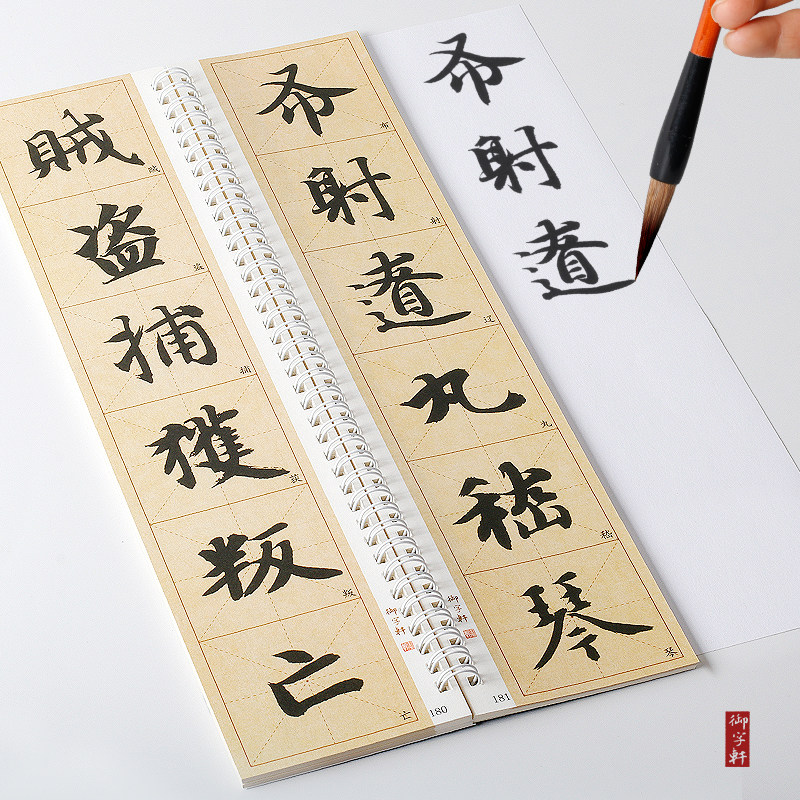 賊盗捕獲叛亡
贼盗捕获叛亡
御字軒
180
布射遼丸嵇琴
布射辽丸嵇琴
御字軒
181
布射遼
御字軒